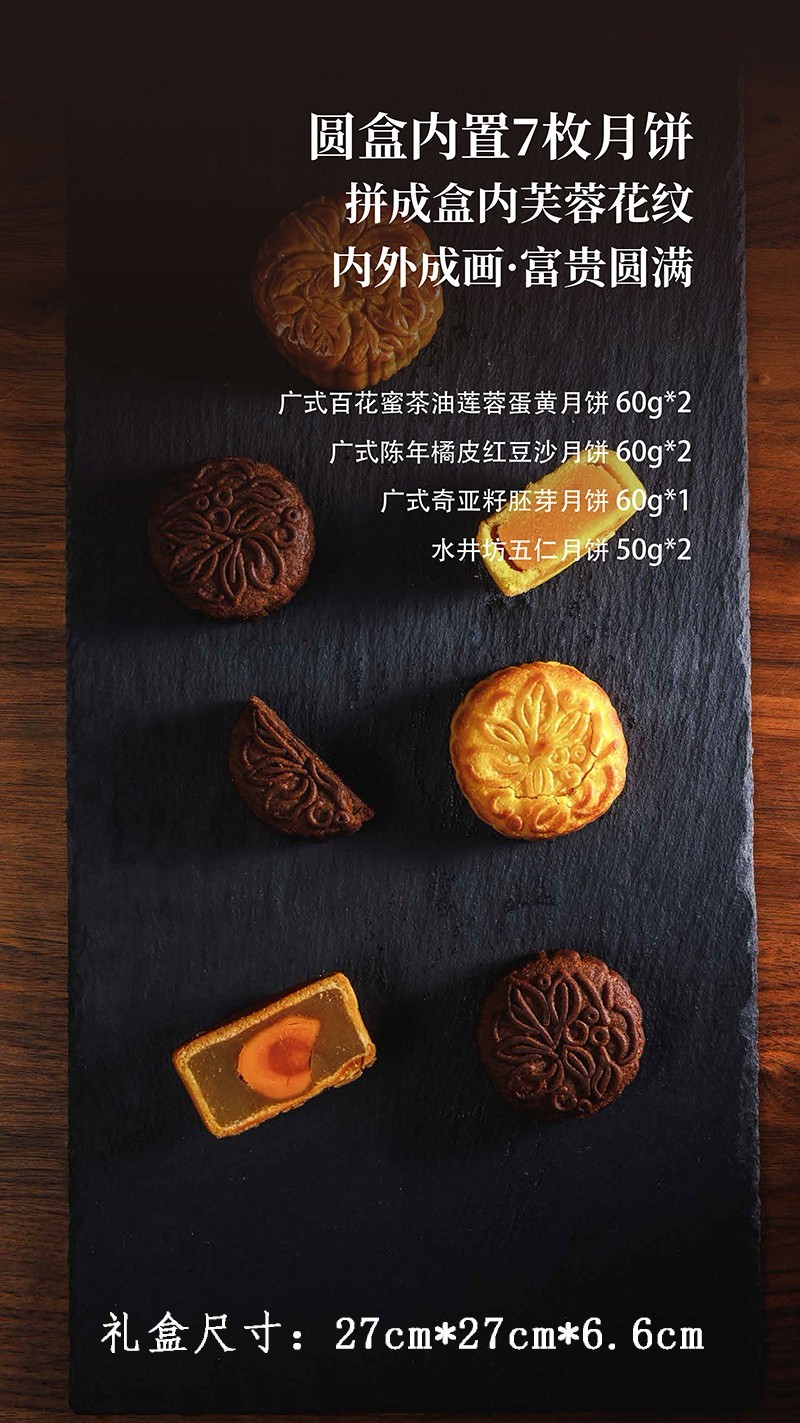 圆盒内置7枚月饼
拼成盒内芙蓉花纹
内外成画·富贵圆满
广式百花蜜茶油莲蓉蛋黄月饼 60g*2
广式陈年橘皮红豆沙月饼 60g*2
广式奇亚籽胚芽月饼 60g*1
水井坊五仁月饼 50g*2
礼盒尺寸：27cm*27cm*6.6cm